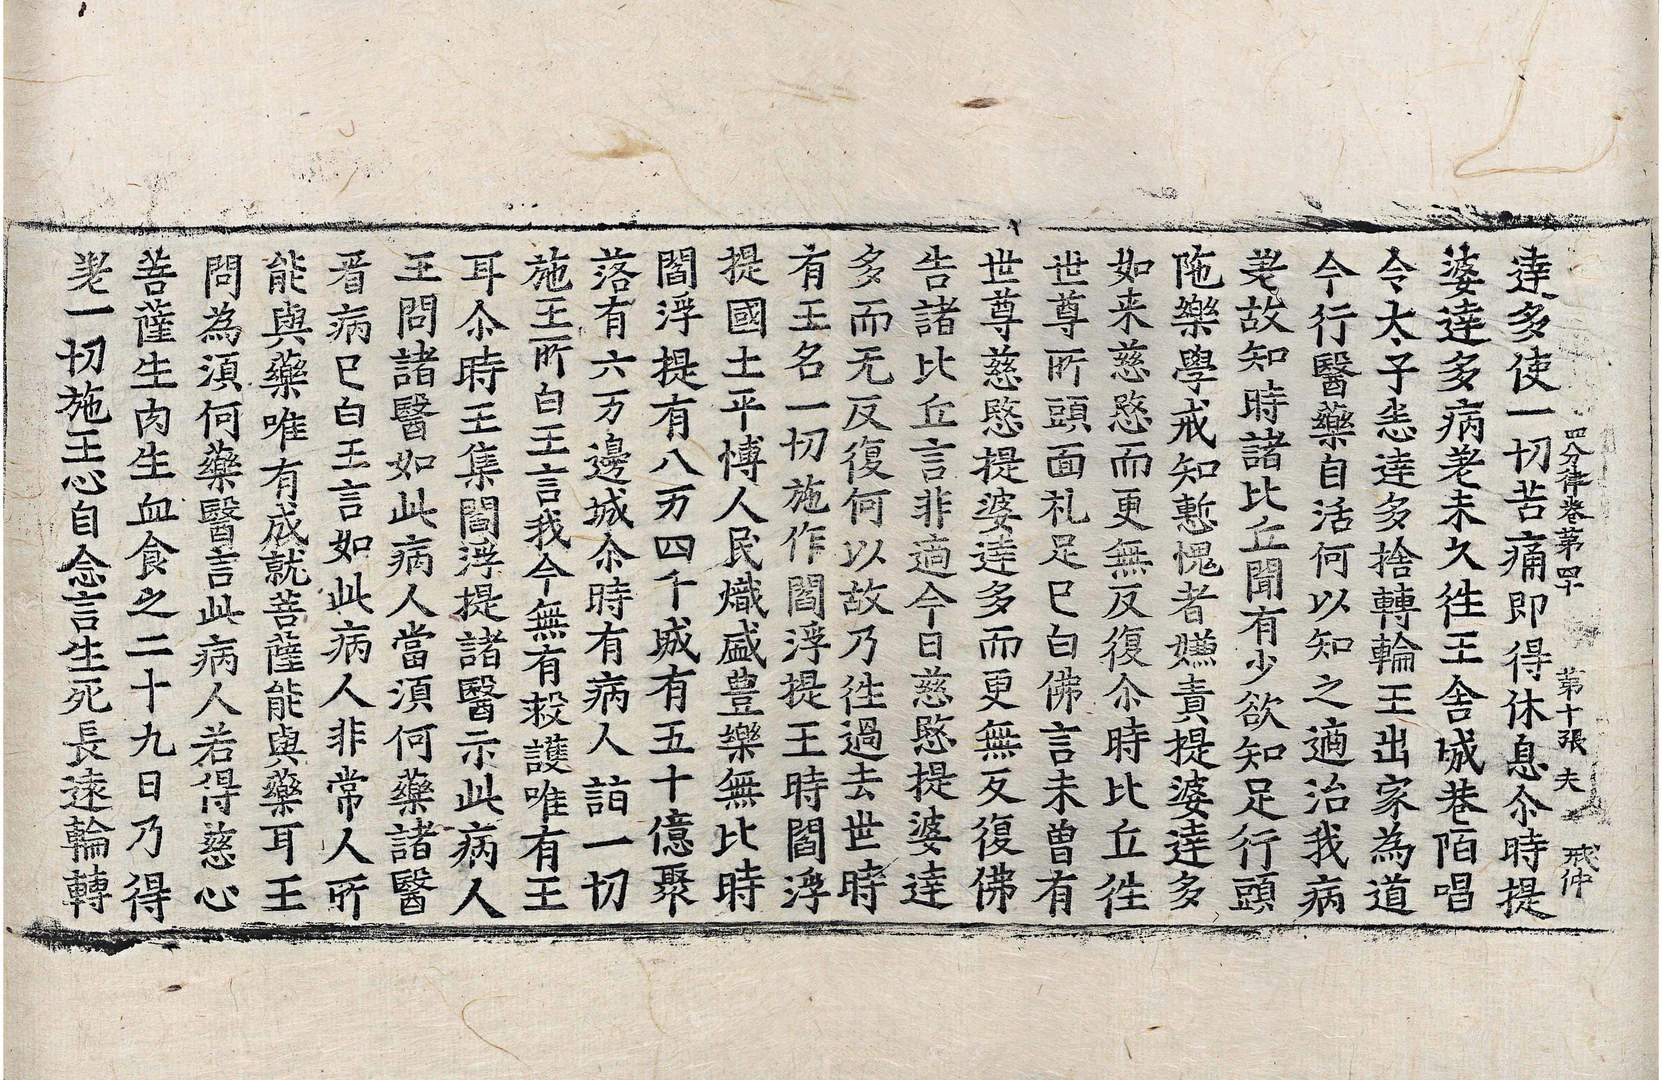 四分律卷第四十 第十張 夫 戒仲
達多使一切苦痛即得休息尒時提
婆達多病差未久徃王舍城巷陌唱
令太子悉達多捨轉輪王出家為道
今行醫藥自活何以知之適治我病
差故知時諸比丘聞有少欲知足行頭
陁樂學戒知慙愧者嫌責提婆達多
如来慈愍而更無反復尒時比丘徃
世尊所頭面札足已白佛言未曾有
世尊慈愍提婆達多而更無反復佛
告諸比丘言非適今日慈愍提婆達
多而无反復何以故乃徃過去世時
有王名一切施作閻浮提王時閻浮
提國土平博人民熾盛豊樂無比時
閻浮提有八万四千城有五十億聚
落有六万邊城尒時有病人詣一切
施王所白王言我今無有救護唯有王
耳尒時王集閻浮提諸醫示此病人
王問諸醫如此病人當湏何藥諸醫
看病已白王言如此病人非常人所
能與藥唯有成就菩薩能與藥耳王
問為湏何藥醫言此病人若得慈心
菩薩生肉生血食之二十九日乃得
差一切施王心自念言生死長遠輪轉